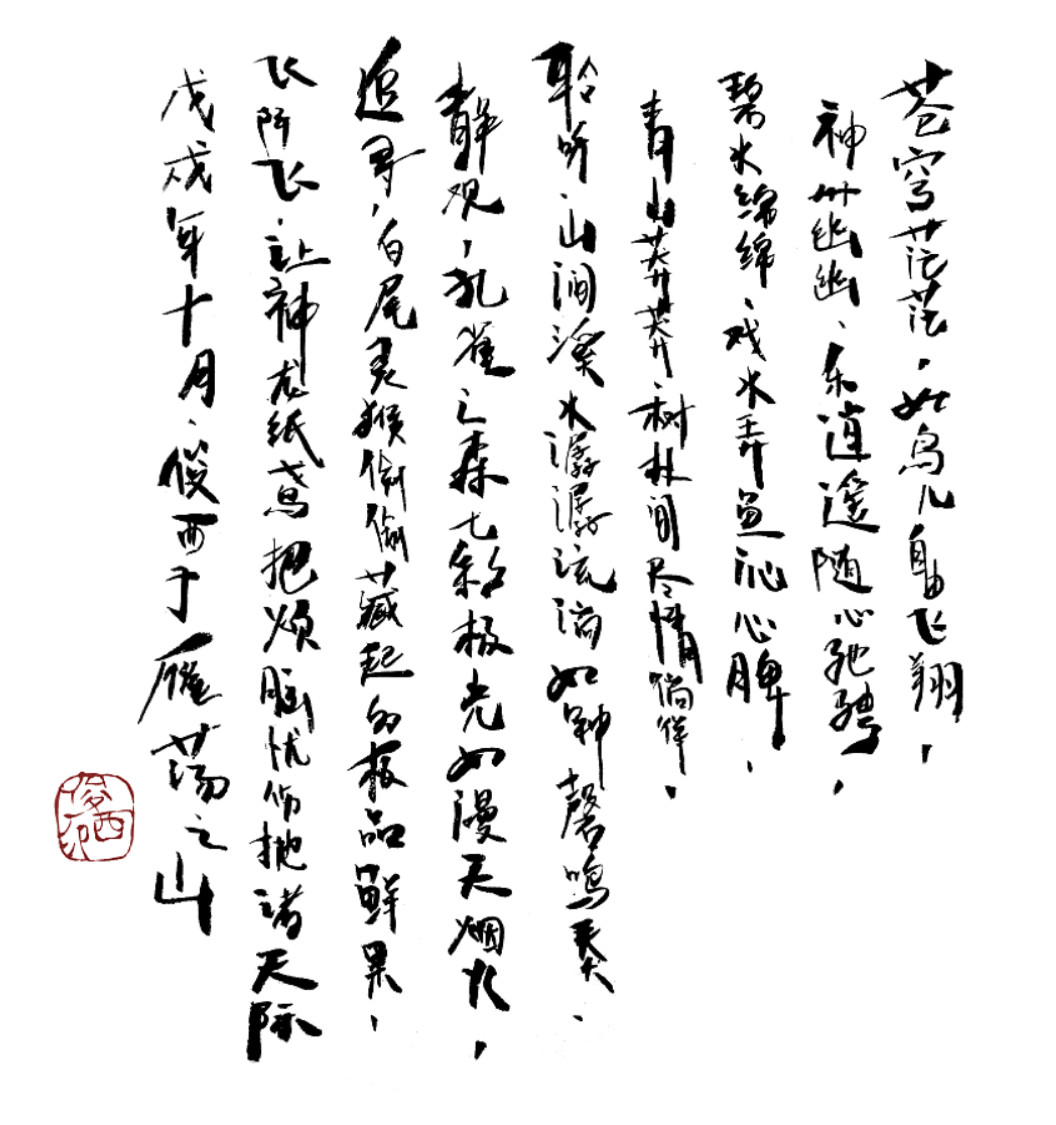 苍穹茫茫，如鸟儿自由飞翔，
神州幽幽、乐逍遥随心驰骋，
碧水绵绵、戏水弄鱼沁心脾，
青山莽莽、树林间尽情徜徉，
聆听、山涧溪水潺潺流淌如钟磬鸣奏、
静观，孔雀之森七彩极光如漫天烟火，
追寻，白尾灵猴偷偷藏起的极品鲜果，
飞阿飞、让神龙纸鸢把烦脑忧伤抛诸天际
戊戌年十月、俊西于雁荡之山
俊西